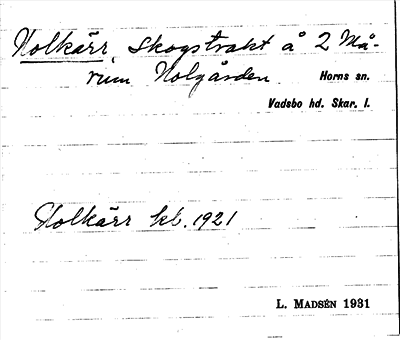 Holkärr, Skogstrakt å 2 Må-
rum Holgården. Horns sn.
Vadsbo hd. Skar. l.
Holkärr kb. 1921
L. MADSÉN 1931